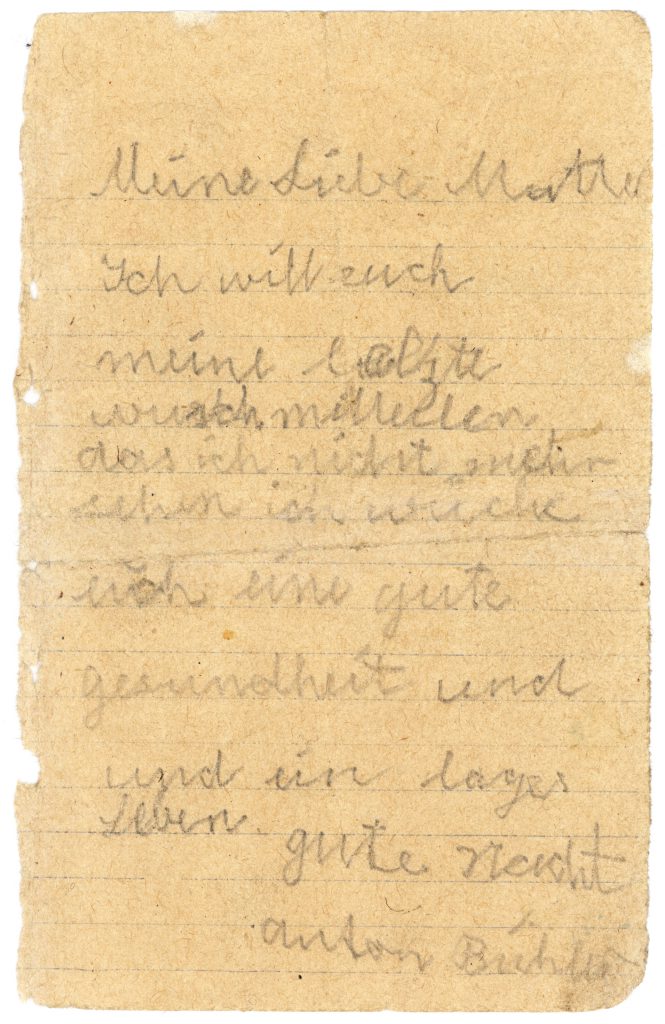 Meine Liebe Mutter
Ich will euch
meine letzte
wusch mitteilen
das ich nicht mehr
sehen ich wücke
euch eine gute
gesundheit und
und ein lages
Leben.
gute Nacht
anton Bühler